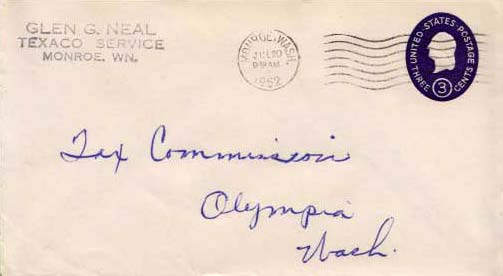 GLEN G. NEAL
TEXACO SERVICE
MONROE, WN.
MONROE, WASH.
JUL 20
9 30 AM
1952
UNITED STATES POSTAGE
THREE 3 CENTS
Tax Commission
Olympia
Wash.